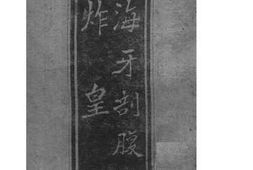 海牙剖腹
炸皇